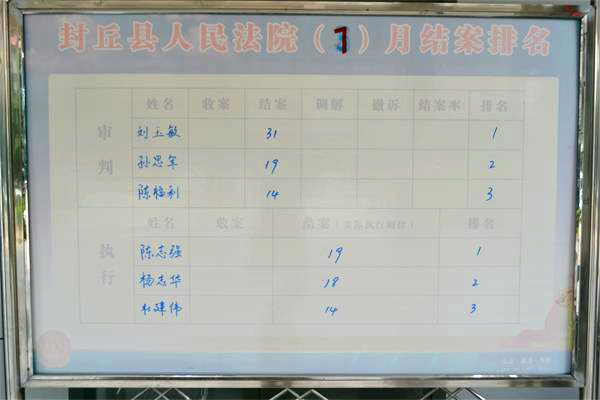 封丘县人民法院（7）月结案排名
审判 姓名 收案 结案 调解 撤诉 结案率 排名
刘玉敏 31 1
孙思军 19 2
陈福利 14 3
执行 姓名 收案 结案（实际执行到位） 排名
陈志强 19 1
杨志华 18 2
杜建伟 14 3